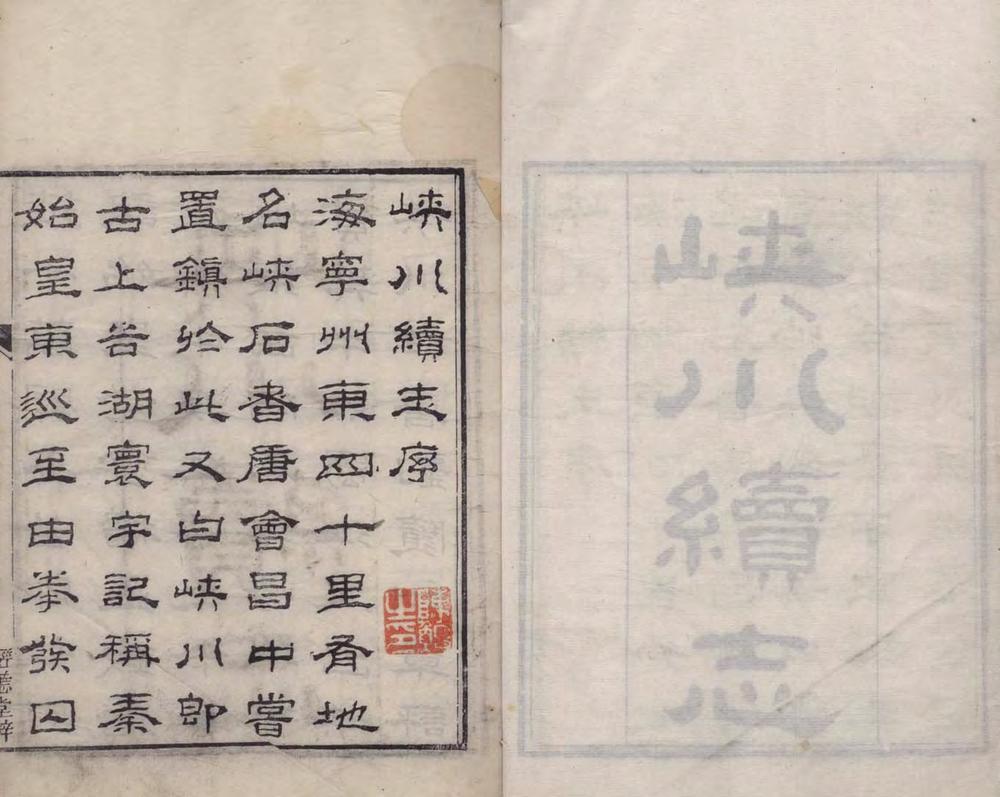 峽川續志
峽川續志序
海寧州東四十里有地
名峽石者唐會昌中嘗
置鎮於此又曰峽川即
古上谷湖寰宇記稱秦
始皇東巡至由拳發囚
堂梓